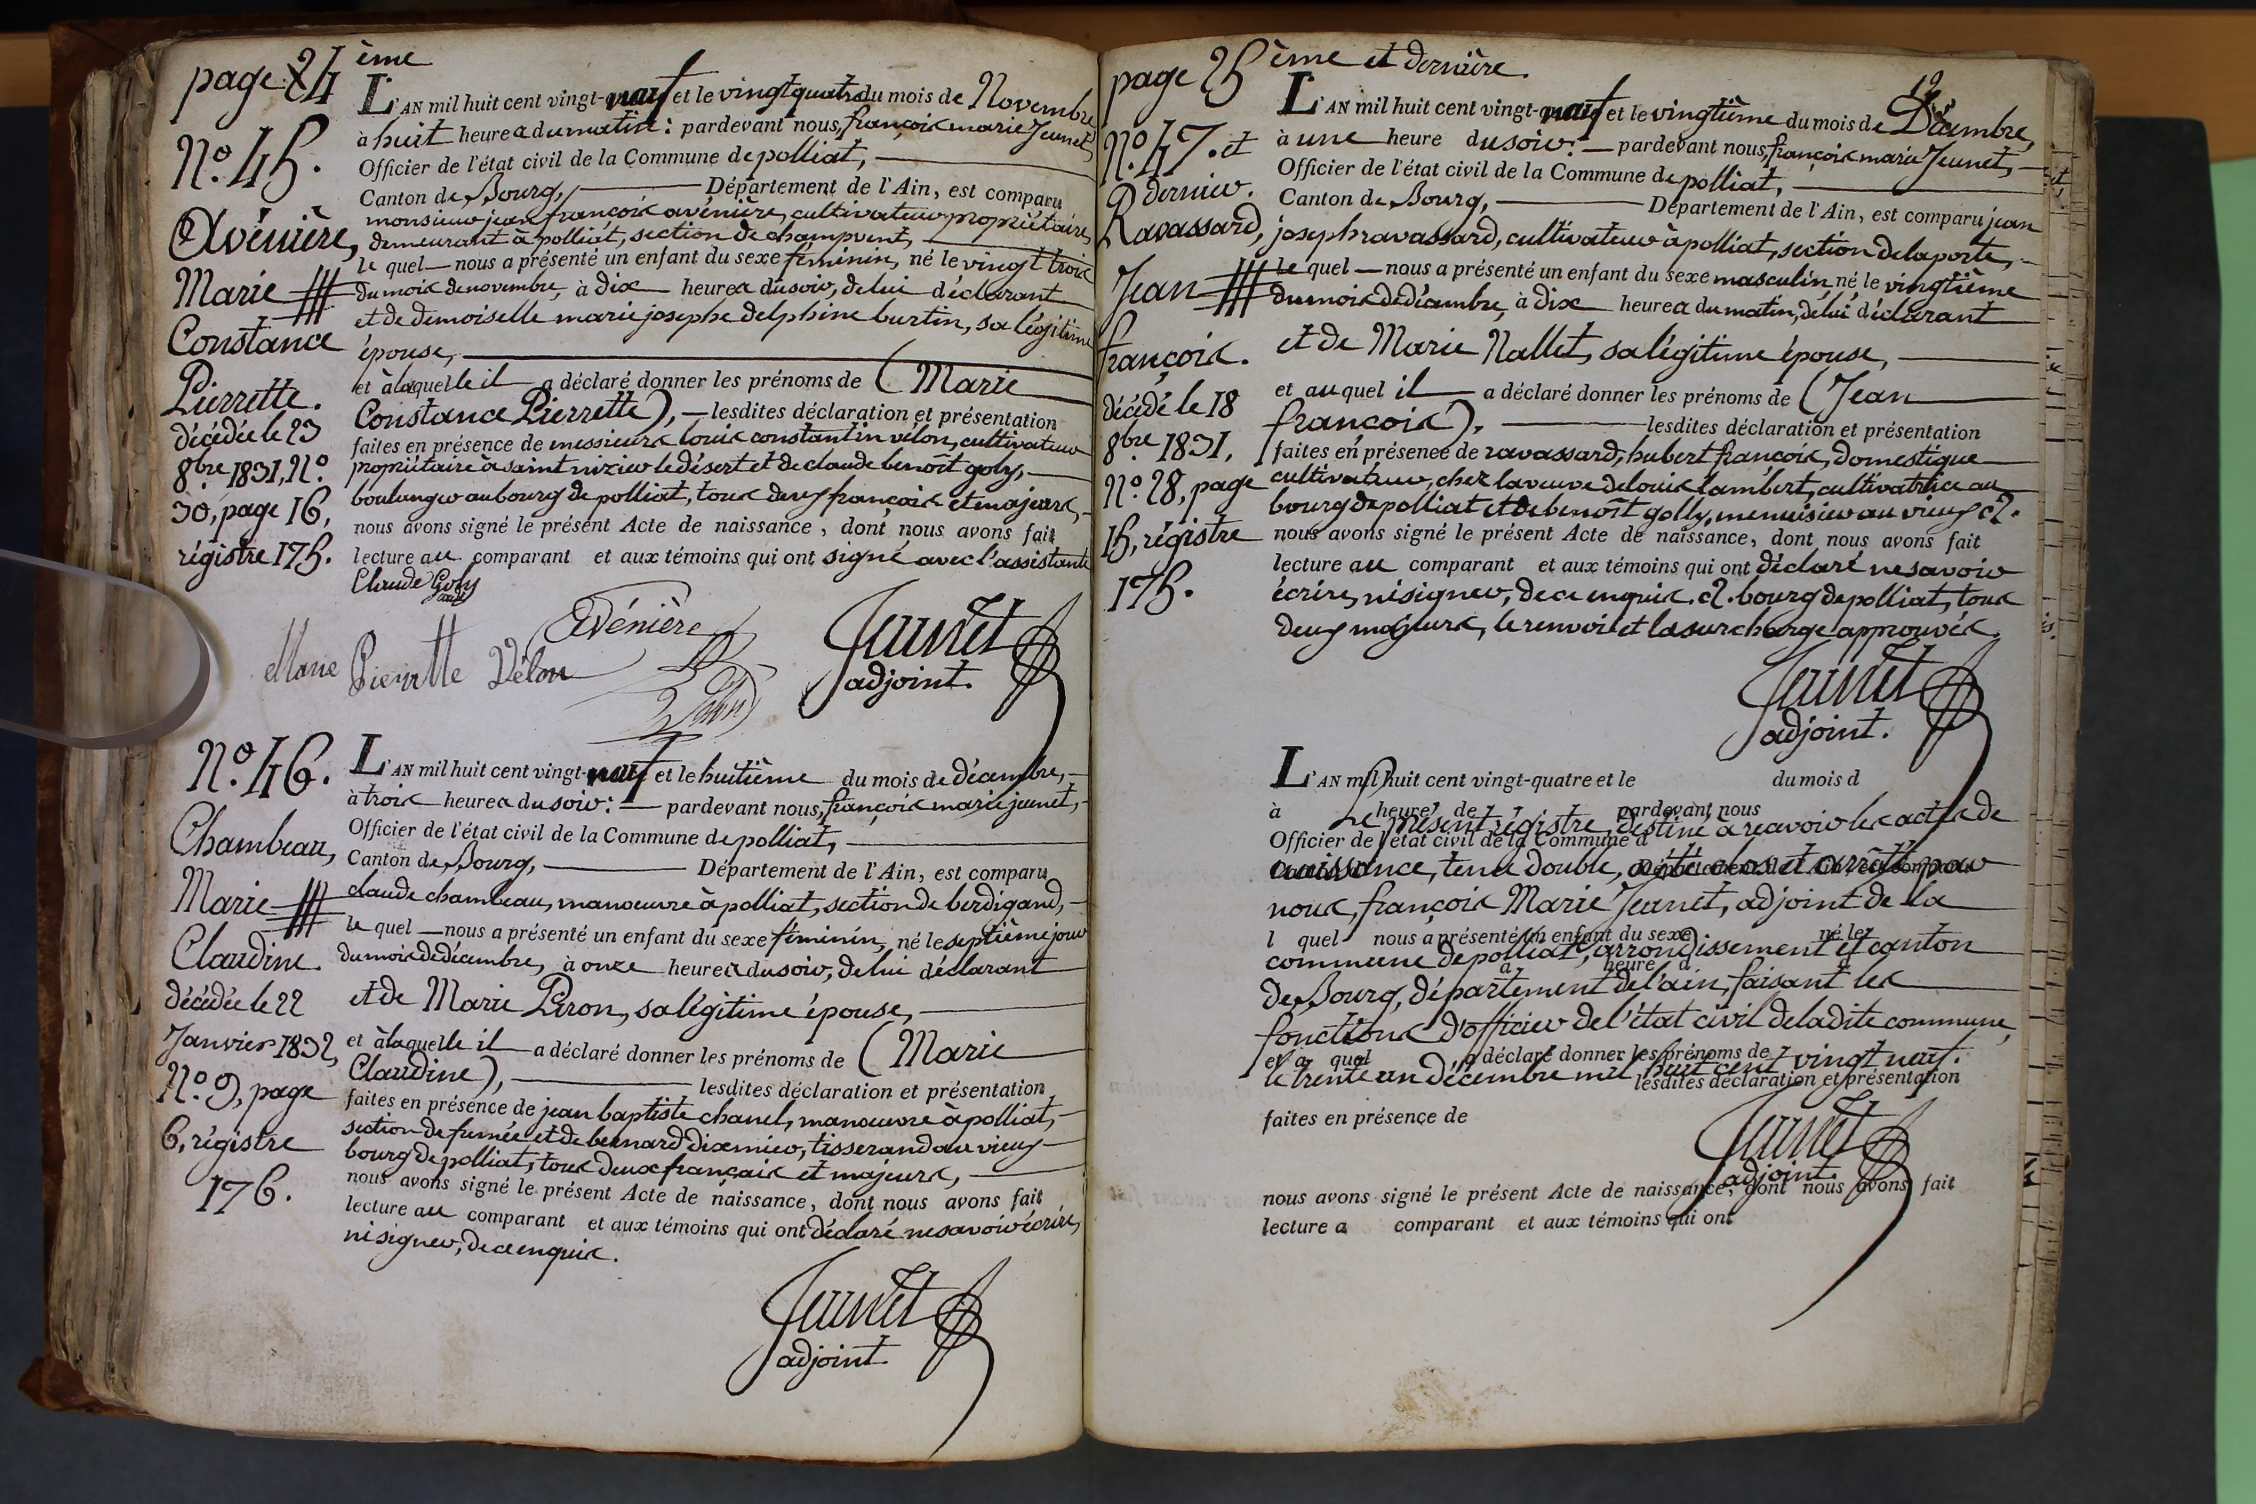 page 24 ème
N.º 45.
Avénière,
Marie
Constance
Pierrette.
décédée le 23
8.bre 1831, N.º
30, page 16,
régistre 175.
L'AN mil huit cent vingt-neuf et le vingt quatre du mois de Novembre
à huit heures du matin: pardevant nous, françois marie Jeunet,
Officier de l'état civil de la Commune de polliat,
Canton de Bourg, Département de l'Ain, est comparu
monsieur jean françois avénière, cultivateur propriétaire,
demeurant à polliat, section de champvent,
le quel nous a présenté un enfant du sexe féminin, né le vingt trois
du mois de novembre, à dix heures du soir, de lui déclarant
et de demoiselle marie josephe delphine burtin, sa légitime
épouse,
et à laquelle il a déclaré donner les prénoms de (Marie
Constance Pierrette), lesdites déclaration et présentation
faites en présence de messieurs louis constantin vélon, cultivateur
propriétaire à saint nizier le désert et de claude benoît goly,
boulanger au bourg de polliat, tous deux françois et majeurs,
nous avons signé le présent Acte de naissance, dont nous avons fait
lecture au comparant et aux témoins qui ont signé avec l'assistante
Claude Goly
Avénière
Marie Pierrette Vélon
Jeunet
adjoint.
N.º 46.
Chambeau,
Marie
Claudine.
décédée le 22
Janvier 1832,
N.º 9, page
6, régistre
176.
L'AN mil huit cent vingt-neuf et le huitième du mois de décembre,
à trois heures du soir: pardevant nous, françois marie jeunet,
Officier de l'état civil de la Commune de polliat,
Canton de Bourg, Département de l'Ain, est comparu
claude chambeau, manoeuvre à polliat, section de berdigand,
le quel nous a présenté un enfant du sexe féminin, né le septième jour
du mois de décembre, à onze heures du soir, de lui déclarant
et de Marie Peron, sa légitime épouse,
et à laquelle il a déclaré donner les prénoms de (Marie
Claudine), lesdites déclaration et présentation
faites en présence de jean baptiste chanel, manoeuvre à polliat,
section de fumée et de bernard dixmier, tisserand au vieux
bourg de polliat, tous deux français et majeurs,
nous avons signé le présent Acte de naissance, dont nous avons fait
lecture au comparant et aux témoins qui ont déclaré ne savoir écrire,
ni signer, de ce enquis.
Jeunet
adjoint.
page 25 ème et dernière.
N.º 47. et
dernier.
Ravassard,
Jean
françois.
décédé le 18
8.bre 1831,
N.º 28, page
15, régistre
175.
L'AN mil huit cent vingt-neuf et le vingtième du mois de Décembre,
à une heure du soir: pardevant nous, françois marie Jeunet,
Officier de l'état civil de la Commune de polliat,
Canton de Bourg, Département de l'Ain, est comparu jean
joseph ravassard, cultivateur à polliat, section de la porte,
le quel nous a présenté un enfant du sexe masculin, né le vingtième
du mois de décembre, à dix heures du matin, de lui déclarant
et de Marie Nallet, sa légitime épouse,
et auquel il a déclaré donner les prénoms de (Jean
françois), lesdites déclaration et présentation
faites en présence de ravassard, hubert françois, domestique
cultivateur, chez la veuve de louis lambert, cultivatrice au
bourg de polliat et de benoît golly, menuisier au vieux
nous avons signé le présent Acte de naissance, dont nous avons fait
lecture au comparant et aux témoins qui ont déclaré ne savoir
écrire, ni signer, de ce enquis. bourg de polliat, tous
deux majeurs, le renvoi et la surcharge approuvés.
Jeunet
adjoint.
L'AN mil huit cent vingt-quatre et le du mois d
à heure de pardevant nous
Le présent régistre, destiné à recevoir les actes de
Officier de l'état civil de la Commune d
naissance, tenu double, a été clos et arrêté par
nous, françois Marie Jeunet, adjoint de la
l quel nous a présenté un enfant du sexe né le
commune de polliat, arrondissement et canton
à heure d
de Bourg, département de l'ain, faisant les
fonctions d'officier de l'état civil de ladite commune,
et a quel a déclaré donner les prénoms de
le trente un décembre mil huit cent vingt neuf.
lesdites déclaration et présentation
faites en présence de
Jeunet
adjoint.
nous avons signé le présent Acte de naissance, dont nous avons fait
lecture a comparant et aux témoins qui ont